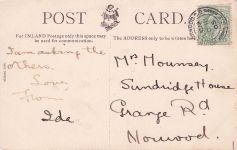 POST CARD.
For INLAND Postage only this space may be used for communication.
The ADDRESS only to be written here
I am asking the
others.
Love
From
Ida
Mrs Hounsey
Sundridge House
Grange Rd
Norwood.